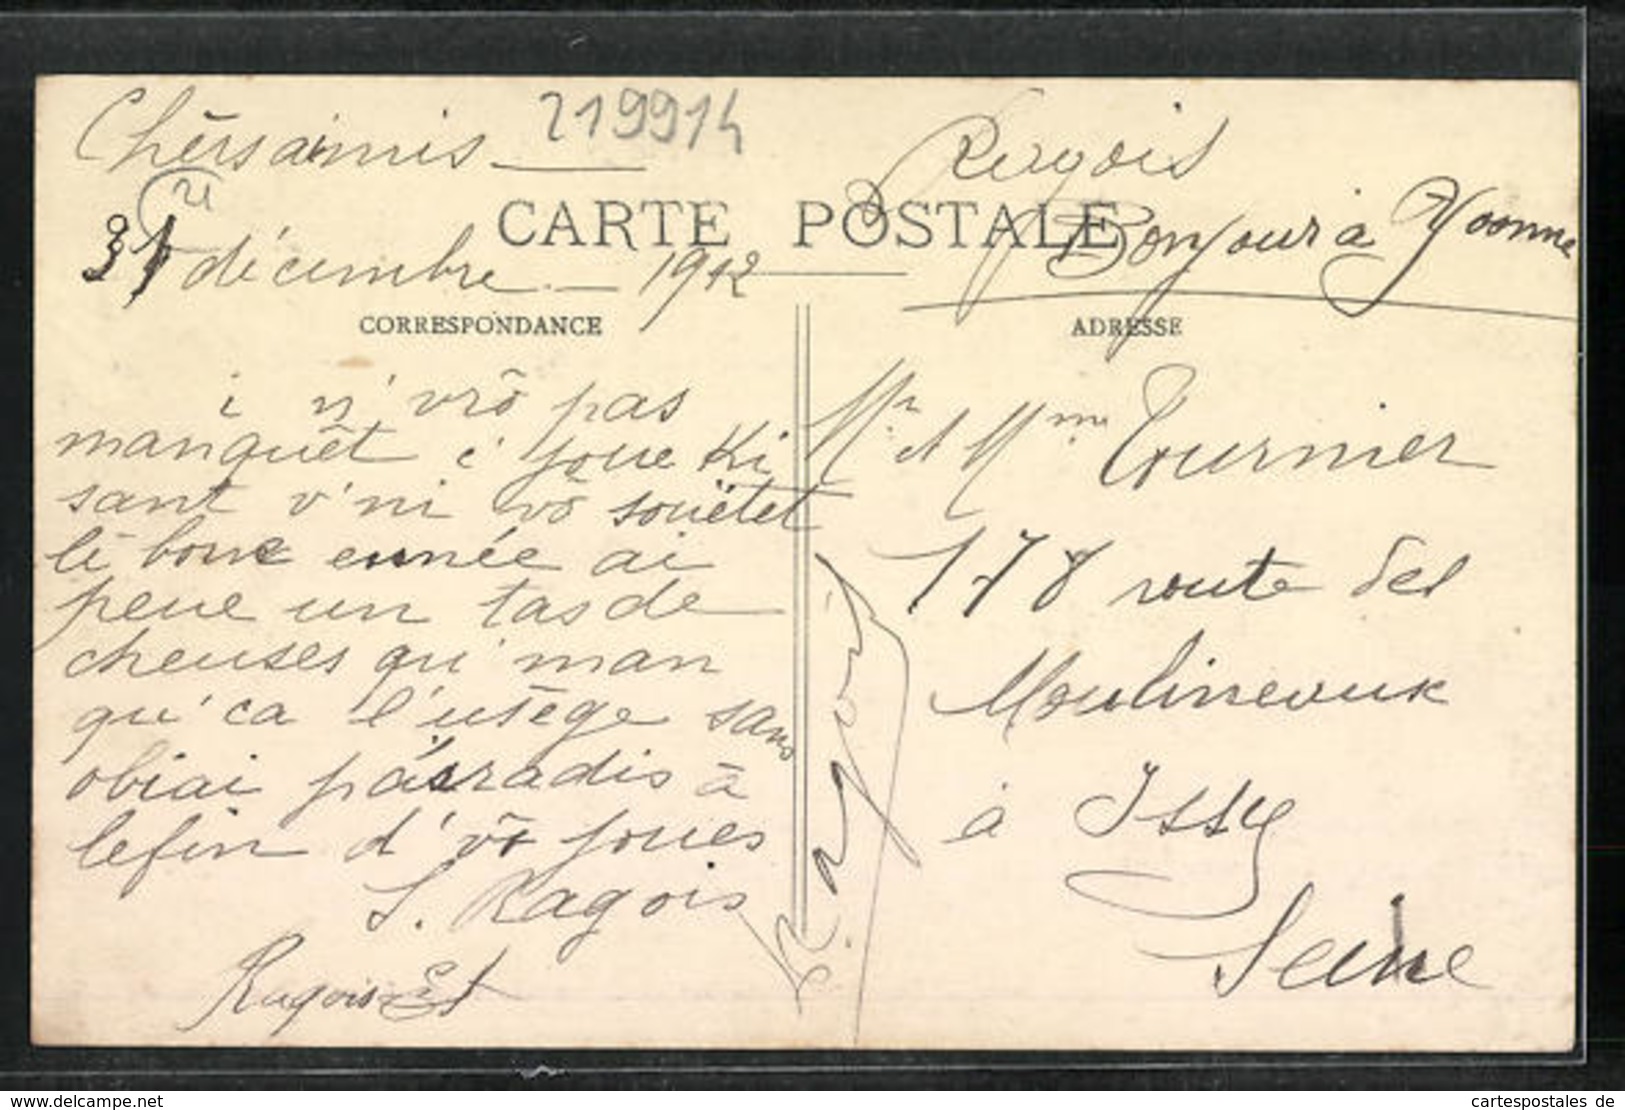 Chers amis
219914
Ragois
CARTE POSTALE
Bonjour à Yvonne
31 décembre 1912
CORRESPONDANCE
ADRESSE
i n'vrô pas
manquêt c joue ki
sant v'ni vô souëtet
lé bone ennée ai
peue un tas de
cheuses qu'man
qu'ca l'utège sans
obiai paradis à
lefin d'vô joues
S. Ragois
Ragois
Ragois
Mr et Mme Tournier
178 route des
Moulineaux
à Issy
Seine
www.delcampe.net
cartespostales de